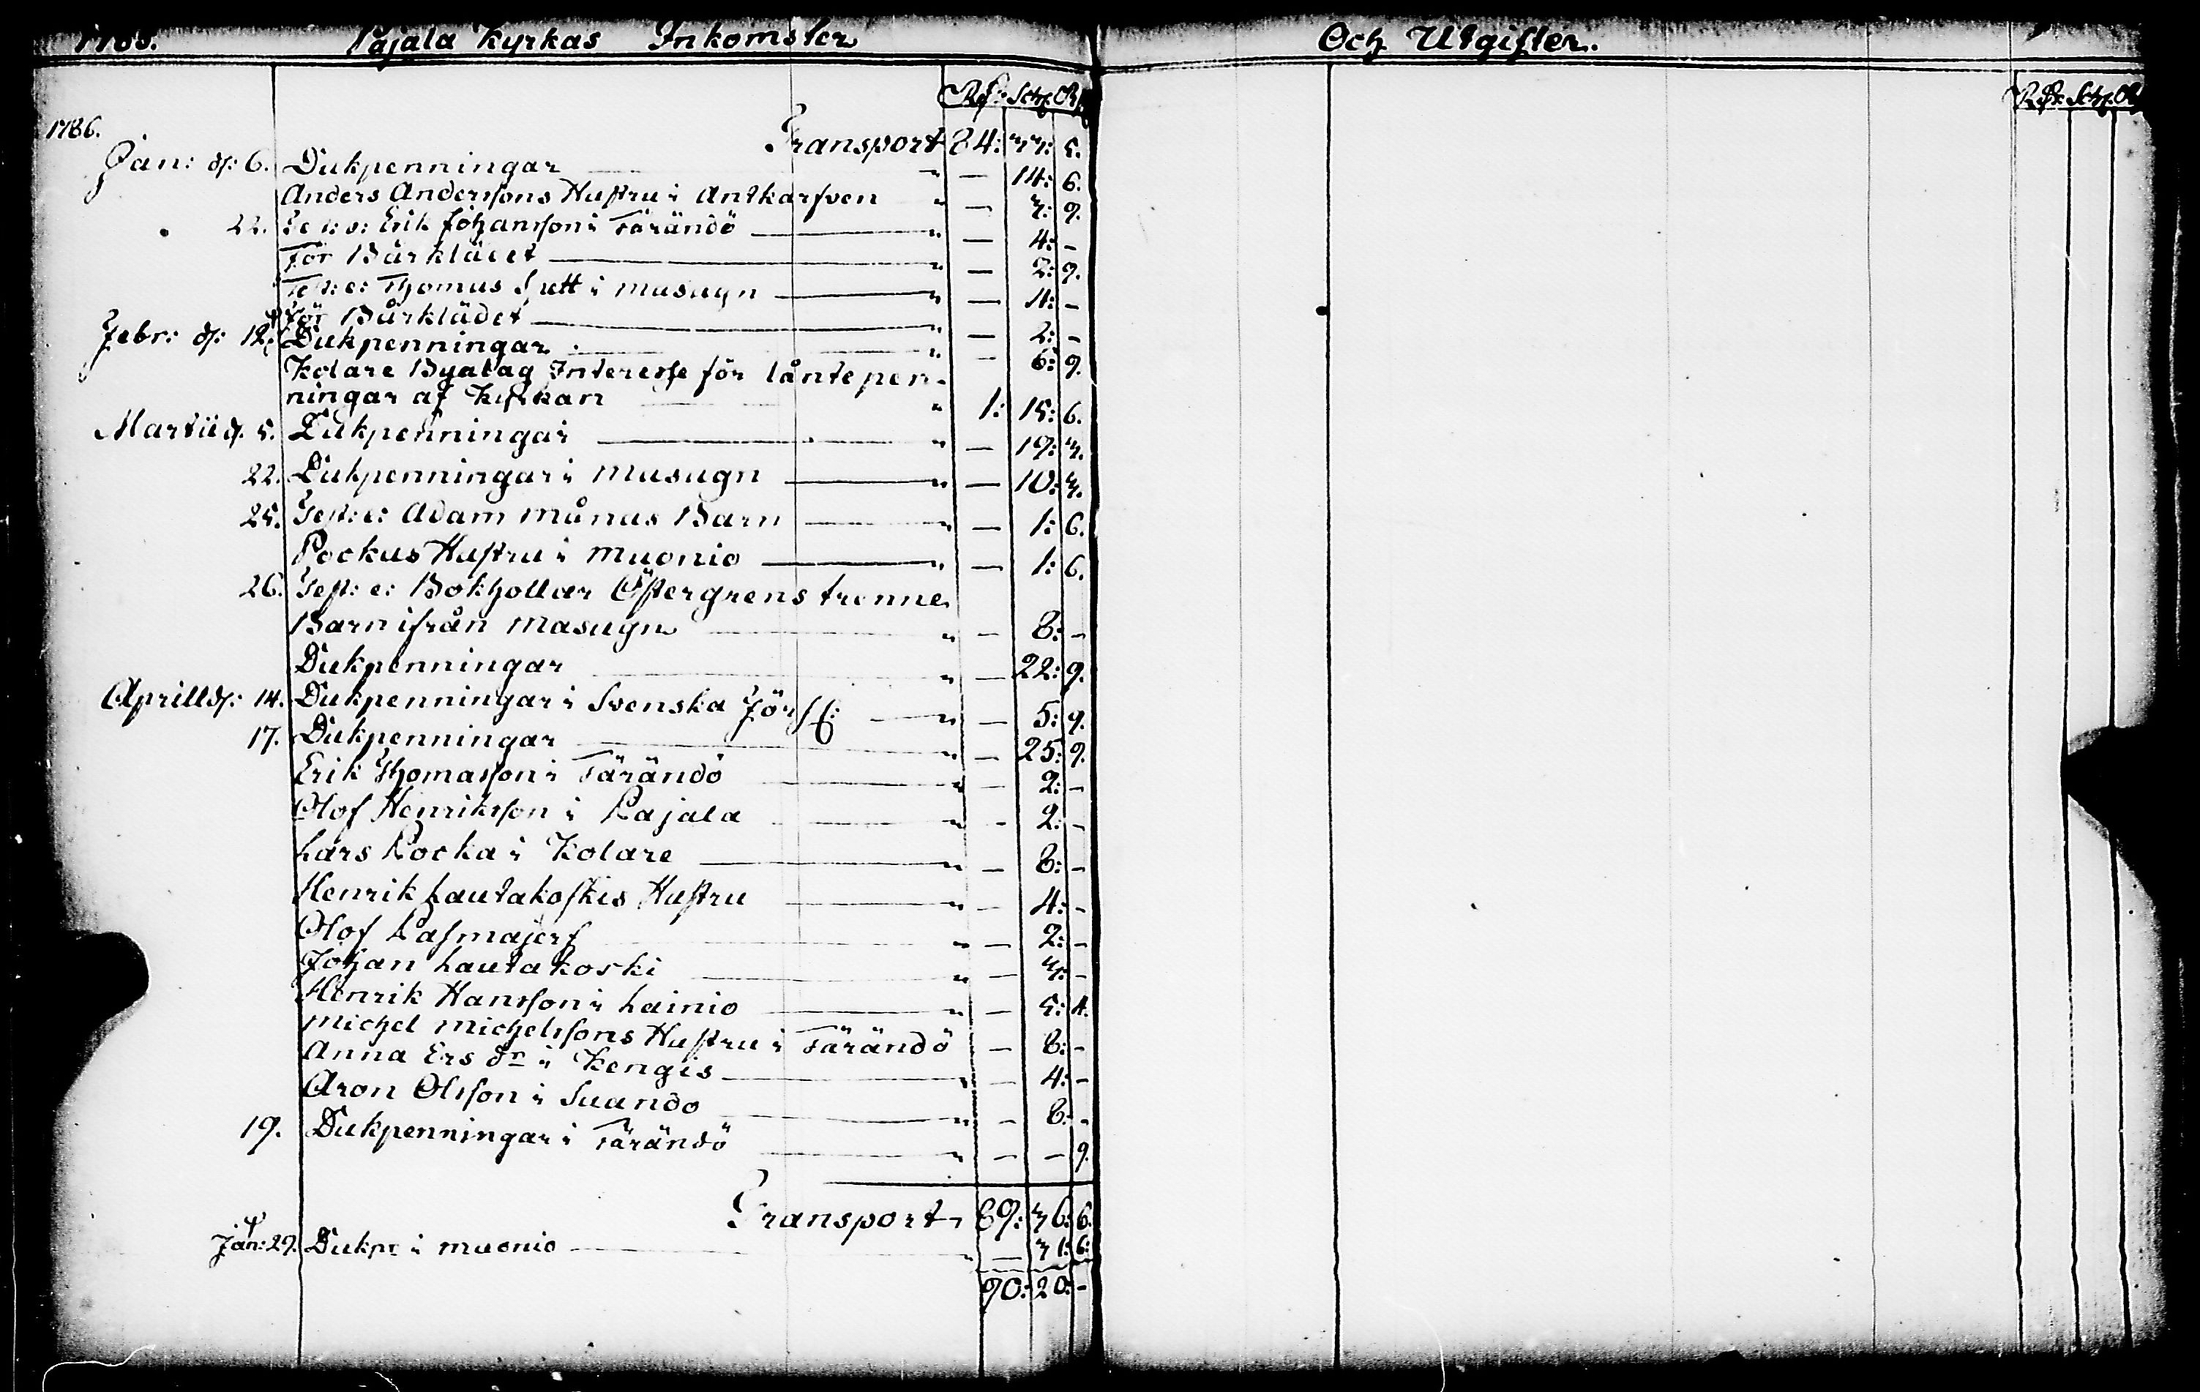 Pajala Kyrkas Inkomster
Och Utgifter.
Rdr: Sch: R
Rdr: Sch: R
1786.
Transport 84: 33: 5.
Jan: d: 6. Dukpenningar " — 14: 6.
Anders Anderssons Hustru i Antkarfven " — 3: 9.
22. Test: e: Erik Johansson i Tärändö " — 4: -
För Bårklädet " — 2: 9.
Test: e: Thomus Sutt i Masugn " — 4: -
För Bårklädet " — 2: -
Febr: d: 12. Dukpenningar " — 6: 9.
Kolare Byalag Interesse för lånte pen-
ningar af Kyrkan " 1: 15: 6.
Martii d. 5. Dukpenningar " — 19: 3.
22. Dukpenningar i Masugn " — 10: 3.
25. Test: e: Adam Månas Barn " — 1: 6.
Pockus Hustru i Muonio " — 1: 6.
26. Test: e: Bokhollar Östergrens trenne
Barn ifrån Masugn " — 8: -
Dukpenningar " — 22: 9.
Aprill d: 14. Dukpenningar i Svenska Förs: " — 5: 9.
17. Dukpenningar " — 25: 9.
Erik Thomasson i Tärändö " — 2: -
Olof Henriksson i Pajala " - 2: -
Lars Pocka i Kolare " — 8: -
Henrik Lautakoskis Hustru " — 4: -
Olof Pasmajerf " — 2: -
Johan Lautakoski " — 3: -
Henrik Hansson i Lainio " — 5: 4.
Michel Michelssons Hustru i Tärändö — 8: -
Anna Ers dr i Kengis " — 4: -
Aron Olsson i Suando " — 8: -
19. Dukpenningar i Tärändö " — — 9.
Transport 89: 36: 6.
Jan: 29. Dukpr i Muonio " — 31: 6:
90: 20: -